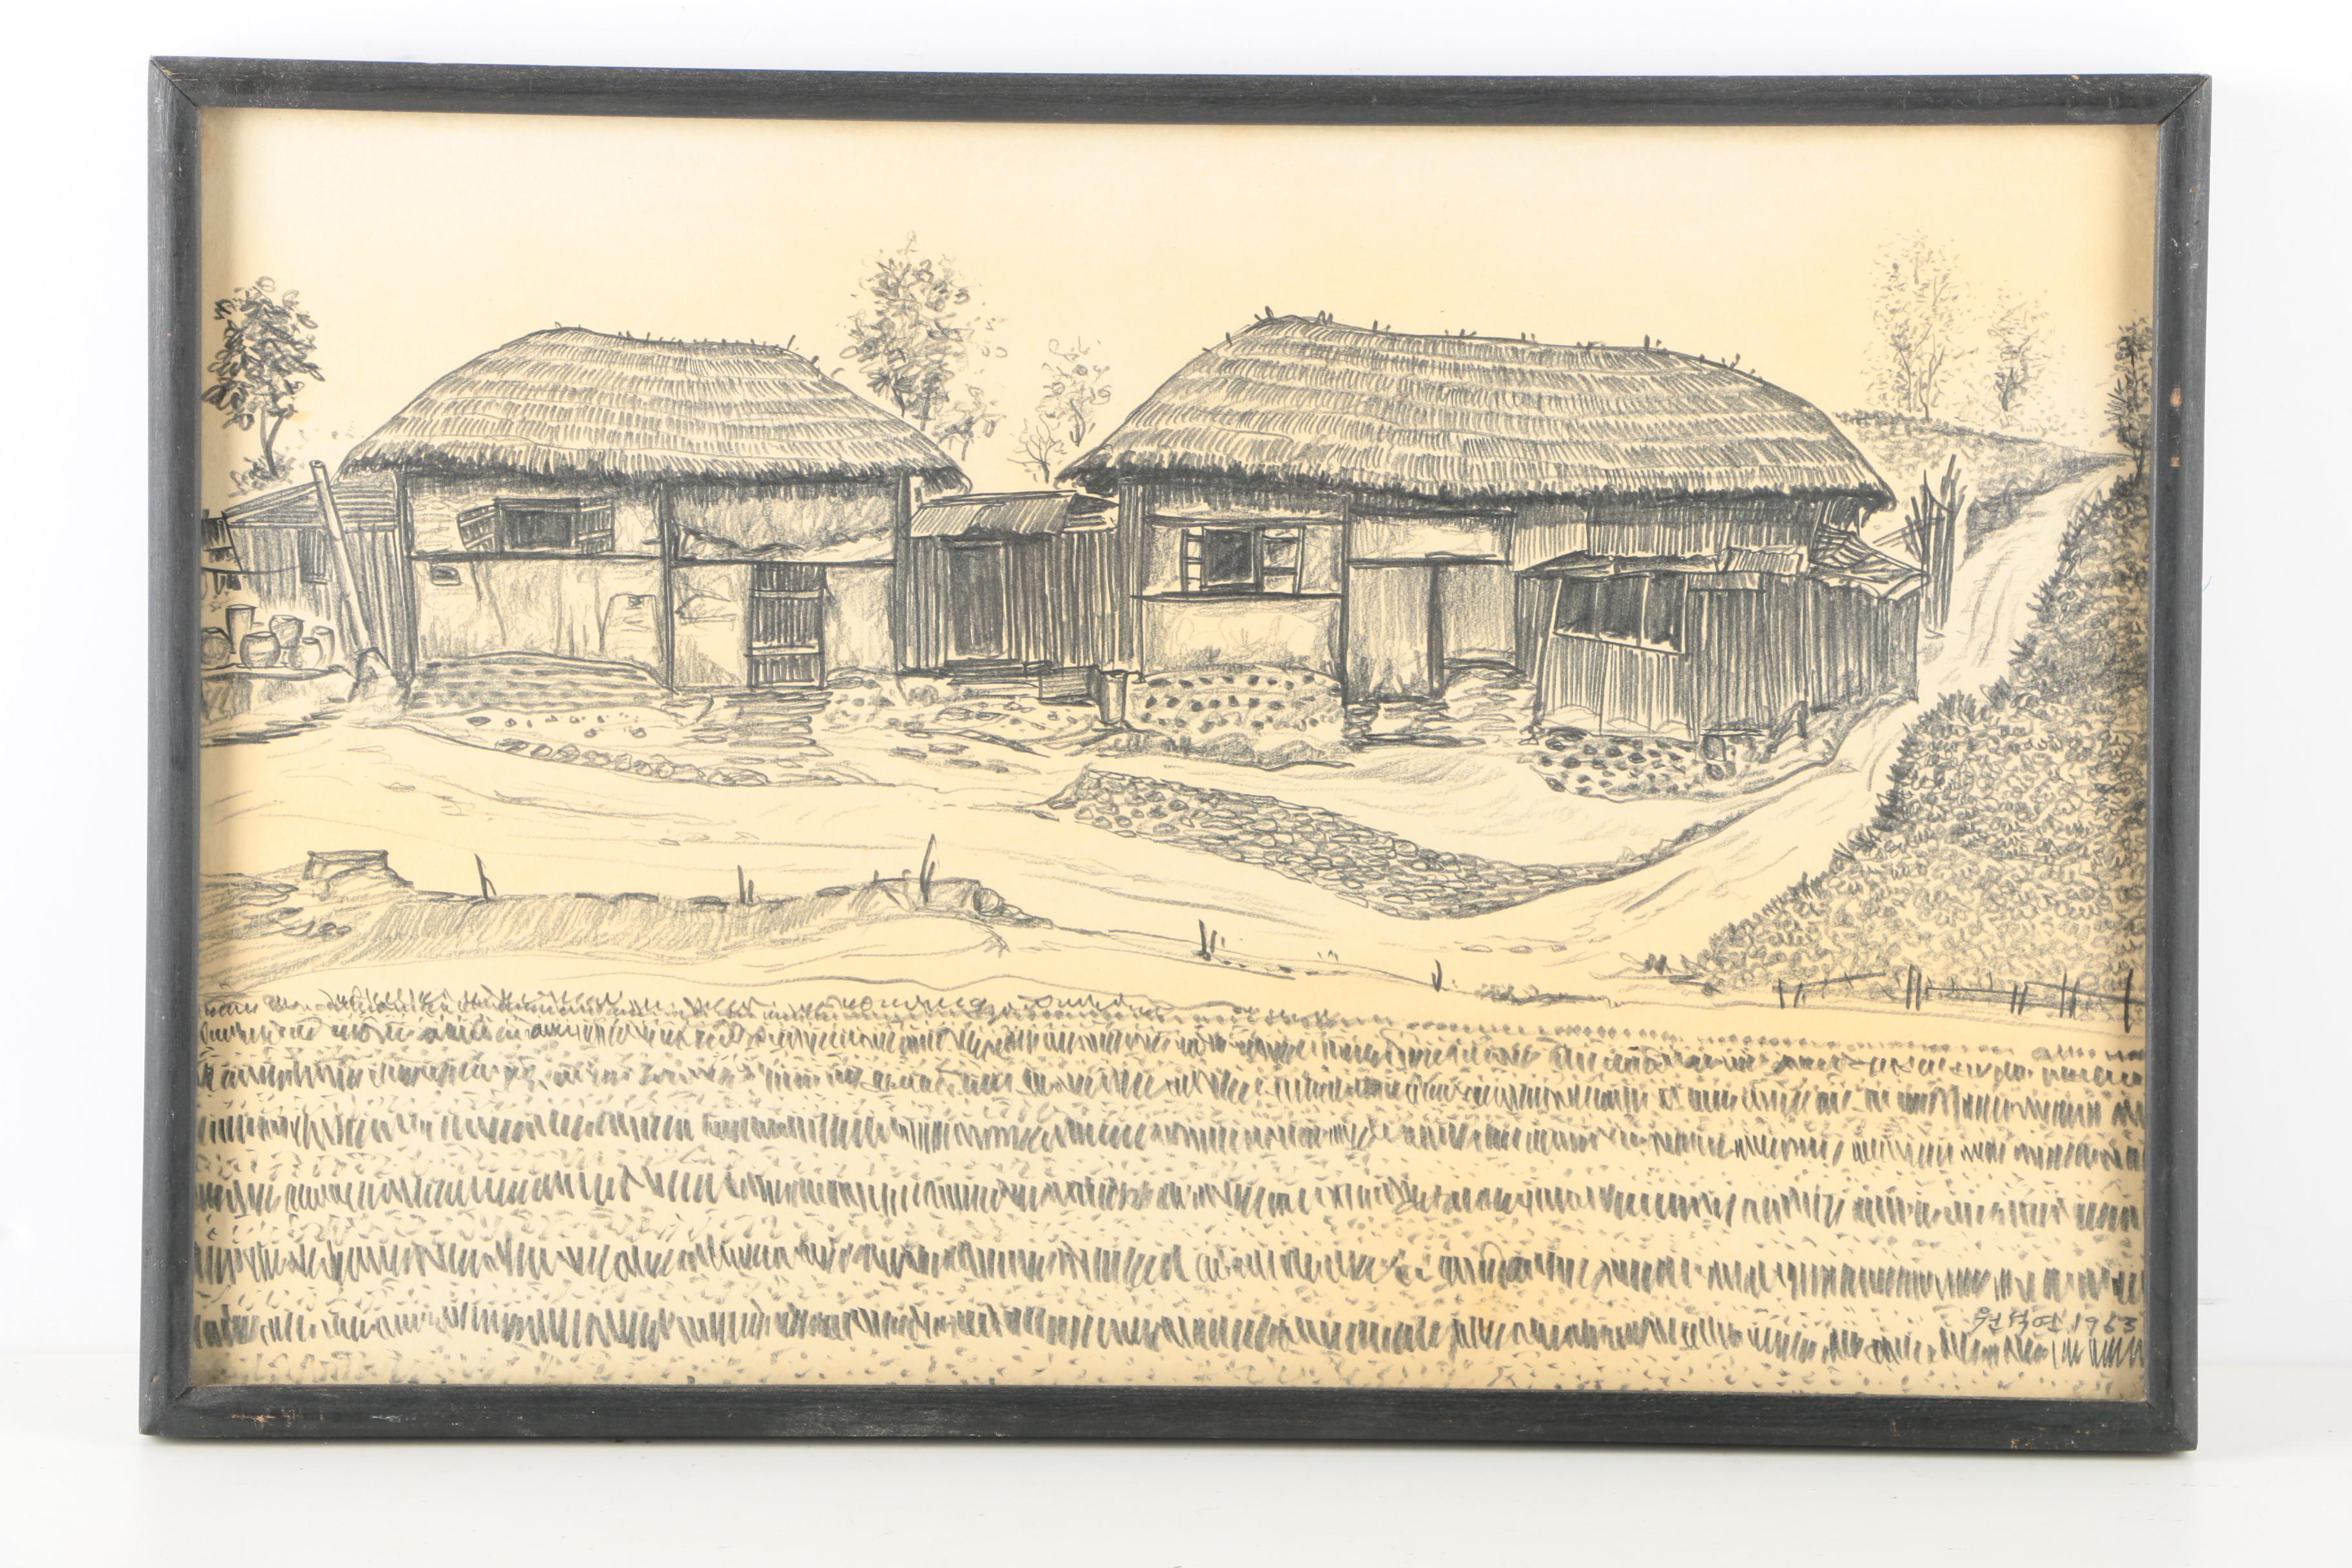 원석연 1963